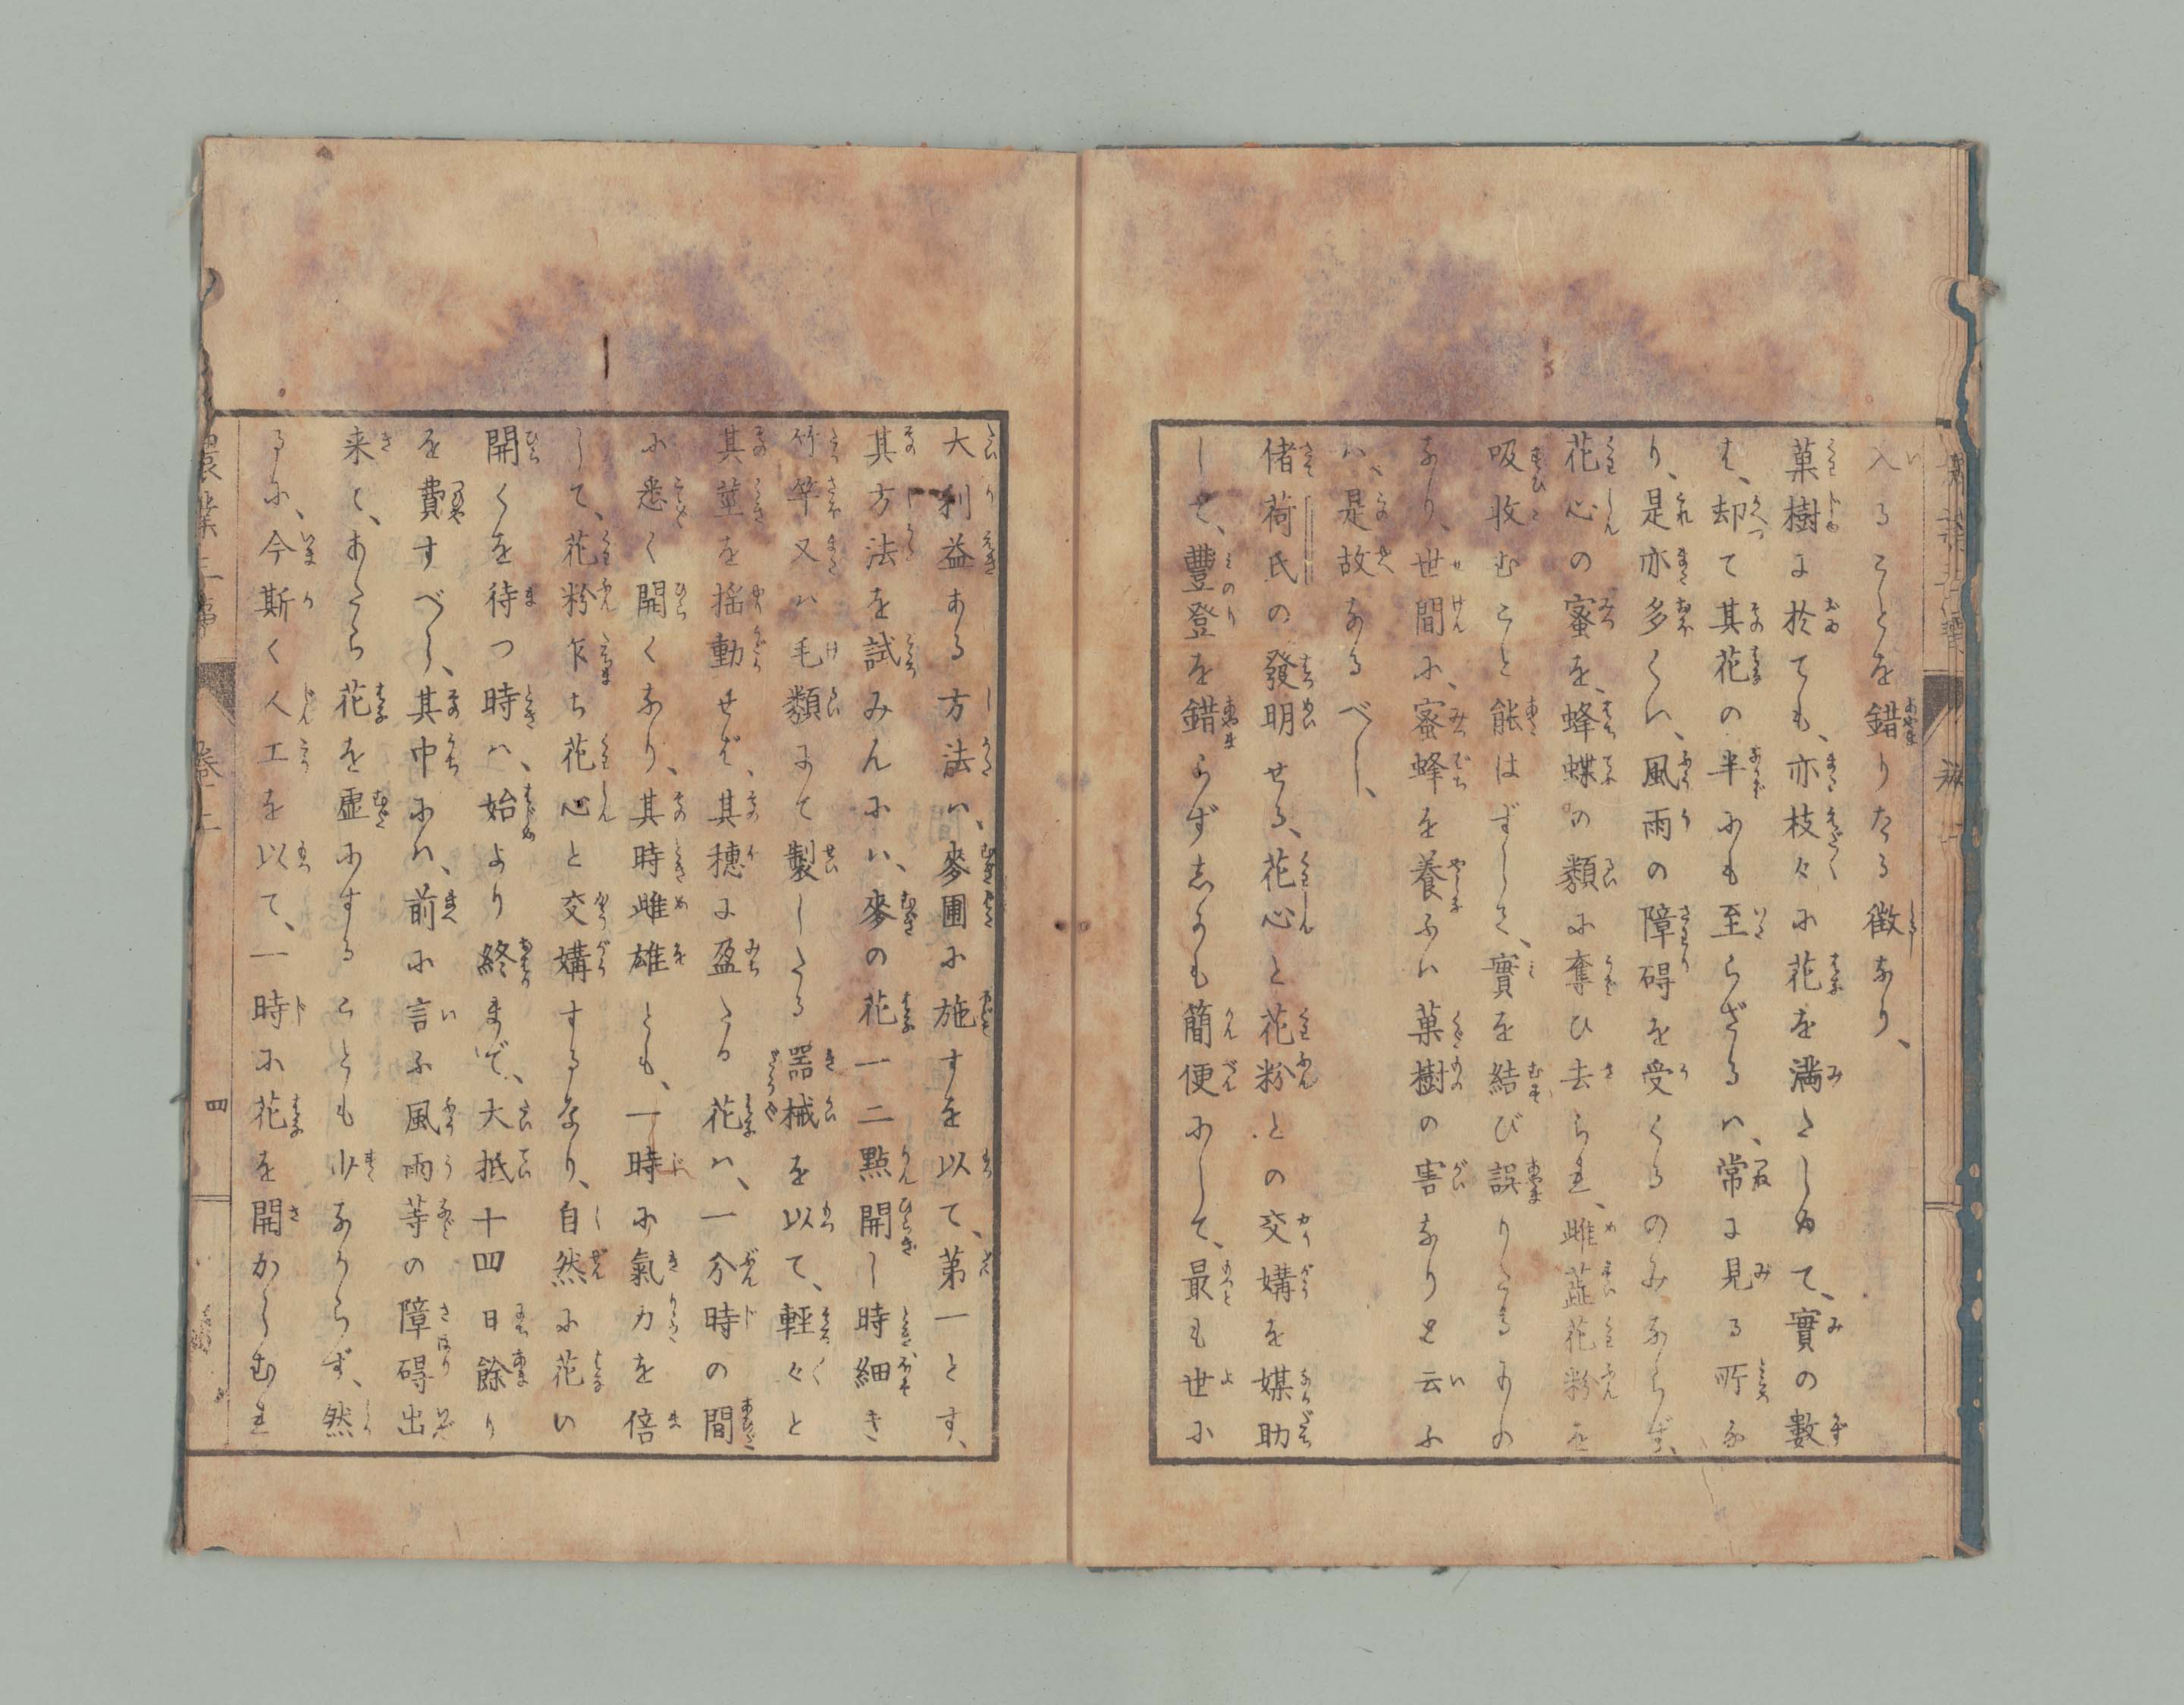 入ることを錯りたる徴なり、
菓樹に於ても、亦枝々に花を滿たしめて、實の數
は、却て其花の半にも至らざるハ、常に見る所な
り、是亦多くハ、風雨の障碍を受くるのみならず、
花心の蜜を、蜂蝶の類に奪ひ去られ、雌蕋花粉を
吸收むこと能はずして、實を結び誤りたるもの
なり、世間に、蜜蜂を養ふハ菓樹の害なりと云ふ
ハ、是故なるべし、
偖荷氏の發明せる、花心と花粉との交媾を媒助
して、豐登を錯らず志かも簡便にして、最も世に
大利益ある方法ハ、麥圃に施すを以て、第一とす、
其方法を試みんにハ、麥の花一二點開し時細き
竹竿又ハ毛類にて製したる器械を以て、輕々と
其莖を搖動せば、其穗に盈たる花ハ、一分時の間
に悉く開くなり、其時雌雄とも、一時に氣力を倍
して、花粉乍ち花心と交媾するなり、自然に花の
開くを待つ時ハ、始より終まで、大抵十四日餘り
を費すべし、其中にハ、前に言ふ風雨等の障碍出
来て、あたら花を虚にすることも少なからず、然
るに、今斯く人工を以て、一時に花を開かしむれ
農業三事
巻上
四